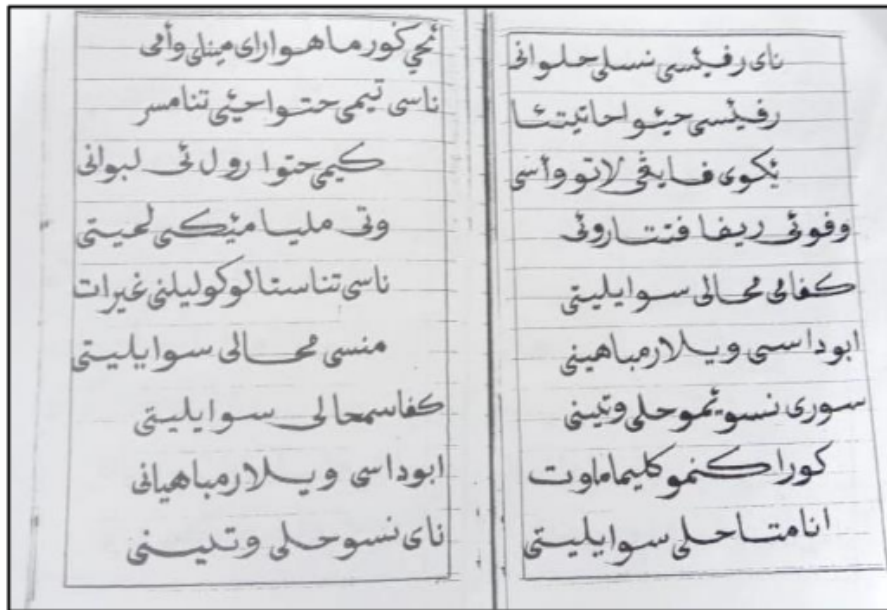 ناى رفيئسى نسلى حلوانى
رفيئسى حيئوا حاتيتئا
يكوى فايڤى لاتو وأسى
وفوئى ريفا فتتاروئى
كفالى محالى سوايليتى
ابوداسى ويلارمباهينى
سورى نسويئموحلى وتيىنى
كوراكنموكليماماوت
انامتاحلى سوايليتى
ئحي كورماهواراى مينلى وأمى
ناسى تيمى حتواحيئى تنامسر
كيمى حتوا رول ئى لبوانى
وتى مليا مئكى لحيتى
ناسى تناستالوكوليلنى غيرات
منسى محالى سوايليتى
كفاسمحالى سوايليتى
ابوداسى ويلارمباهيانى
ناى نسوحلى وتيىنى